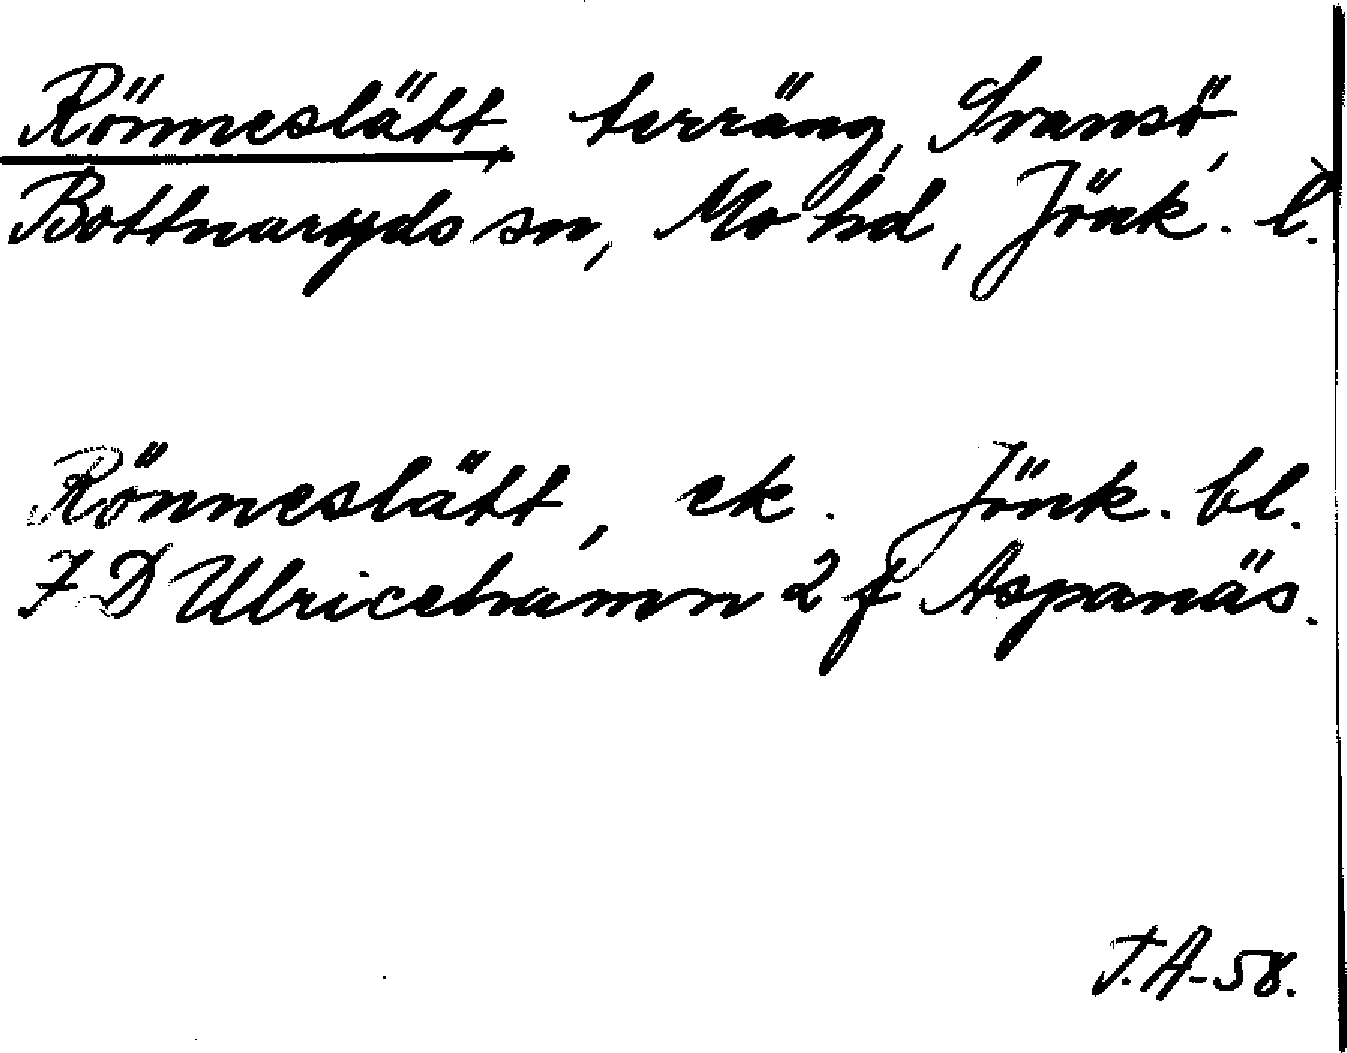 Rönneslätt, terräng, Svansö,
Bottnaryds sn, Mo hd, Jönk. l.
Rönneslätt, ek. Jönk. bl.
7 D Ulricehamn 2 f Aspanäs.
T.A-58.